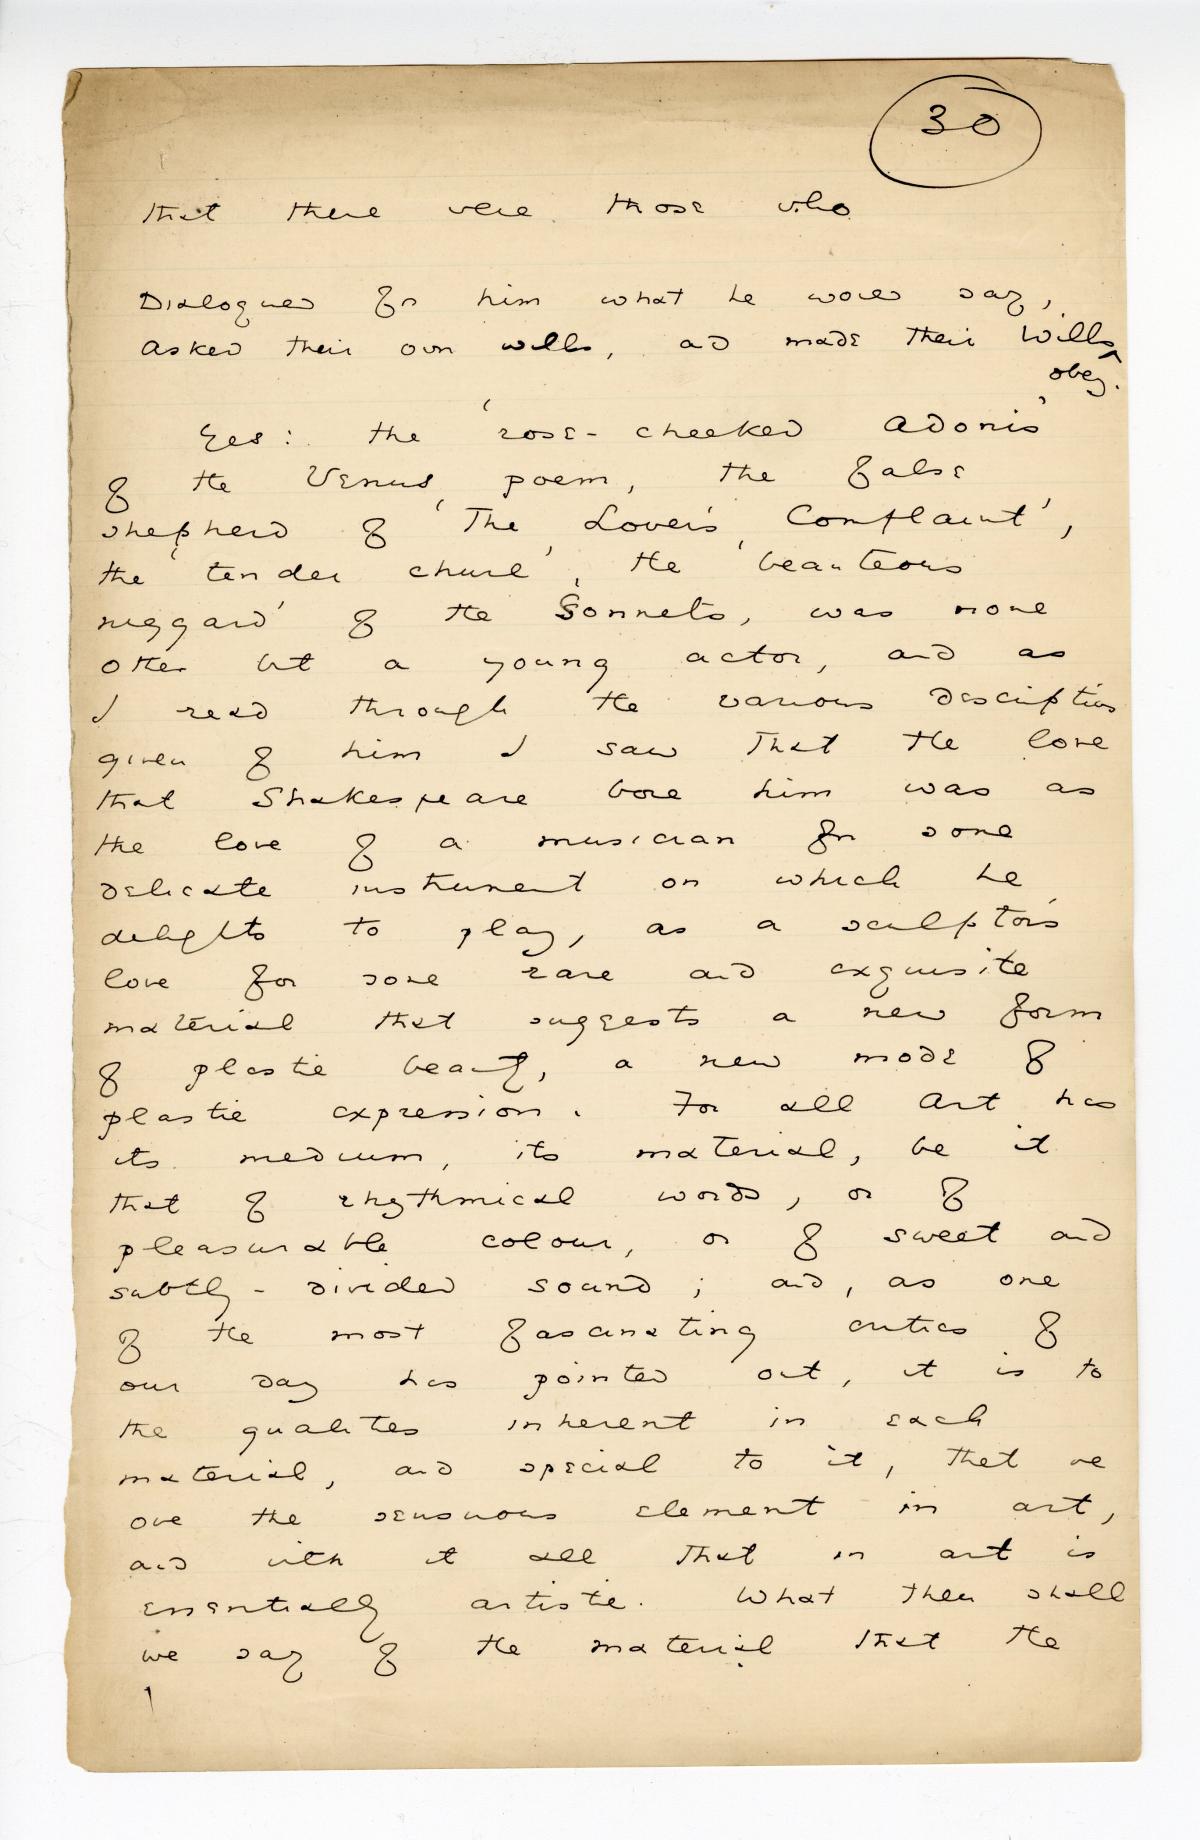 30
that there were those who
Dialogued for him what he would say,
Asked their own wills, and made their Wills
obey.
Yes: the 'rose-cheeked Adonis'
of the Venus poem, the false
shepherd of 'The Lover's Complaint',
the 'tender churl', the 'beauteous
niggard' of the Sonnets, was none
other but a young actor, and as
I read through the various descriptions
given of him I saw that the love
that Shakespeare bore him was as
the love of a musician for some
delicate instrument on which he
delights to play, as a sculptor's
love for some rare and exquisite
material that suggests a new form
of plastic beauty, a new mode of
plastic expression. For all Art has
its medium, its material, be it
that of rhythmical words, or of
pleasurable colour, or of sweet and
subtly-divided sound; and, as one
of the most fascinating critics of
our day has pointed out, it is to
the qualities inherent in each
material, and special to it, that we
owe the sensuous element in art,
and with it all that in art is
essentially artistic. What then shall
we say of the material that the